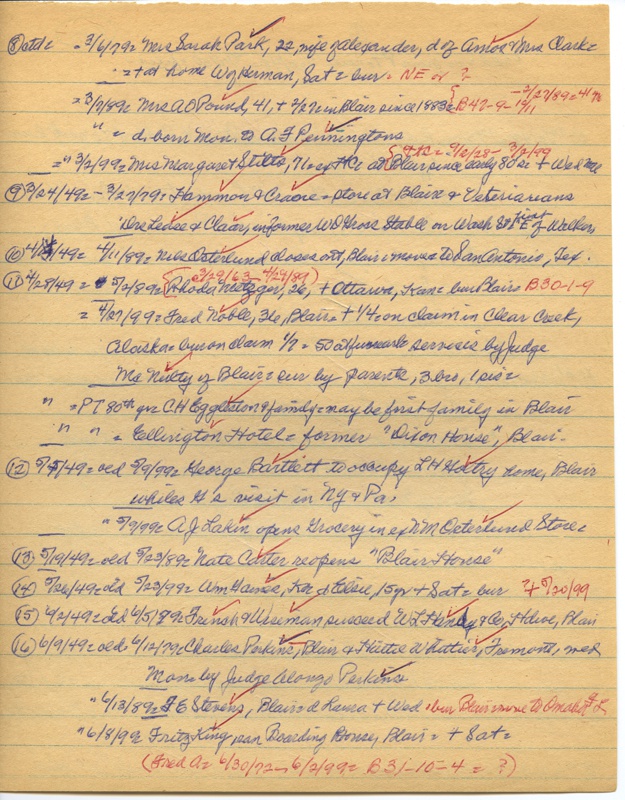 ⑧ atd = = 3/6/79 = Mrs Sarah Park, 22, wife of Alexander, d of Amos & Mrs Clark =
= + at home W of Herman, Sat = bur = NE or ?
= 3/7/89 = Mrs A O Pound, 41, + 2/27 in Blair since 1883 = B 47-9-1911 - 2/27/89 = 41
" = d. born Mon. to A. F Penningtons
= " 3/2/99 = Mrs Margaret Stilts, 71 = at Blair since early 80s = + Wed 9/2/28 - 3/2/99
⑨ 3/24/49 = - 3/27/79 = Hammon & Craove = store at Blair & Veterinarians
Drs Ledse & Claar, in former W D Gross Stable on Wash St first E of Walkers
⑩ 49 = 4/11/89 = Niels Osterlund closes out, Blair = move to San Antonio, Tex.
⑪ 4/28/49 = 5/2/89 = Rhoda Metzger, 26, + Ottawa, Kans = bur Blair = B30-1-9 (3/29/63 - 4/29/89)
= 4/27/99 = Fred Noble, 36, Blair = + 1/4 = on claim in Clear Creek,
Alaska = bur on claim 1/7 = 50 at funeral = services by Judge
Mc Nulty of Blair = sur by parents, 3 bro, 1 sis =
" = PT 80th yr C H Eggleston & family = may be first family in Blair
" " = Ellington Hotel = former "Dixon House", Blair -
⑫ 5/5/49 = ocd 5/9/99 = George Bartlett to occupy L H Holtry home, Blair
while H's visit in NY & Pa,
" 5/9/99 = A J Lakin opens Grocery in ex N M Osterlund Store =
⑬ 5/19/49 = ocd 5/23/89 = Nate Cutter reopens "Blair House"
⑭ 5/26/49 = ocd 5/23/99 = Wm Haines, Ken d Elsie, 15 yr + Sat = bur + 5/20/99
⑮ 6/2/49 = ocd 6/5/89 = French & Wiseman succeed W L Handy & Co, Hdwe, Blair
⑯ 6/9/49 = ocd 6/12/79 = Charles Perkins, Blair & Hattie Whittier, Fremont, wed
Mon = by Judge Alonzo Perkins
" 6/13/89 = F E Stevens, Blair = d Laura + Wed = bur Blair = move to Omaha
" 6/8/99 = Fritz King, ran Boarding House, Blair = + Sat =
(Fred A = 6/30/72 - 6/2/99 = B 31-10-4 = ?)